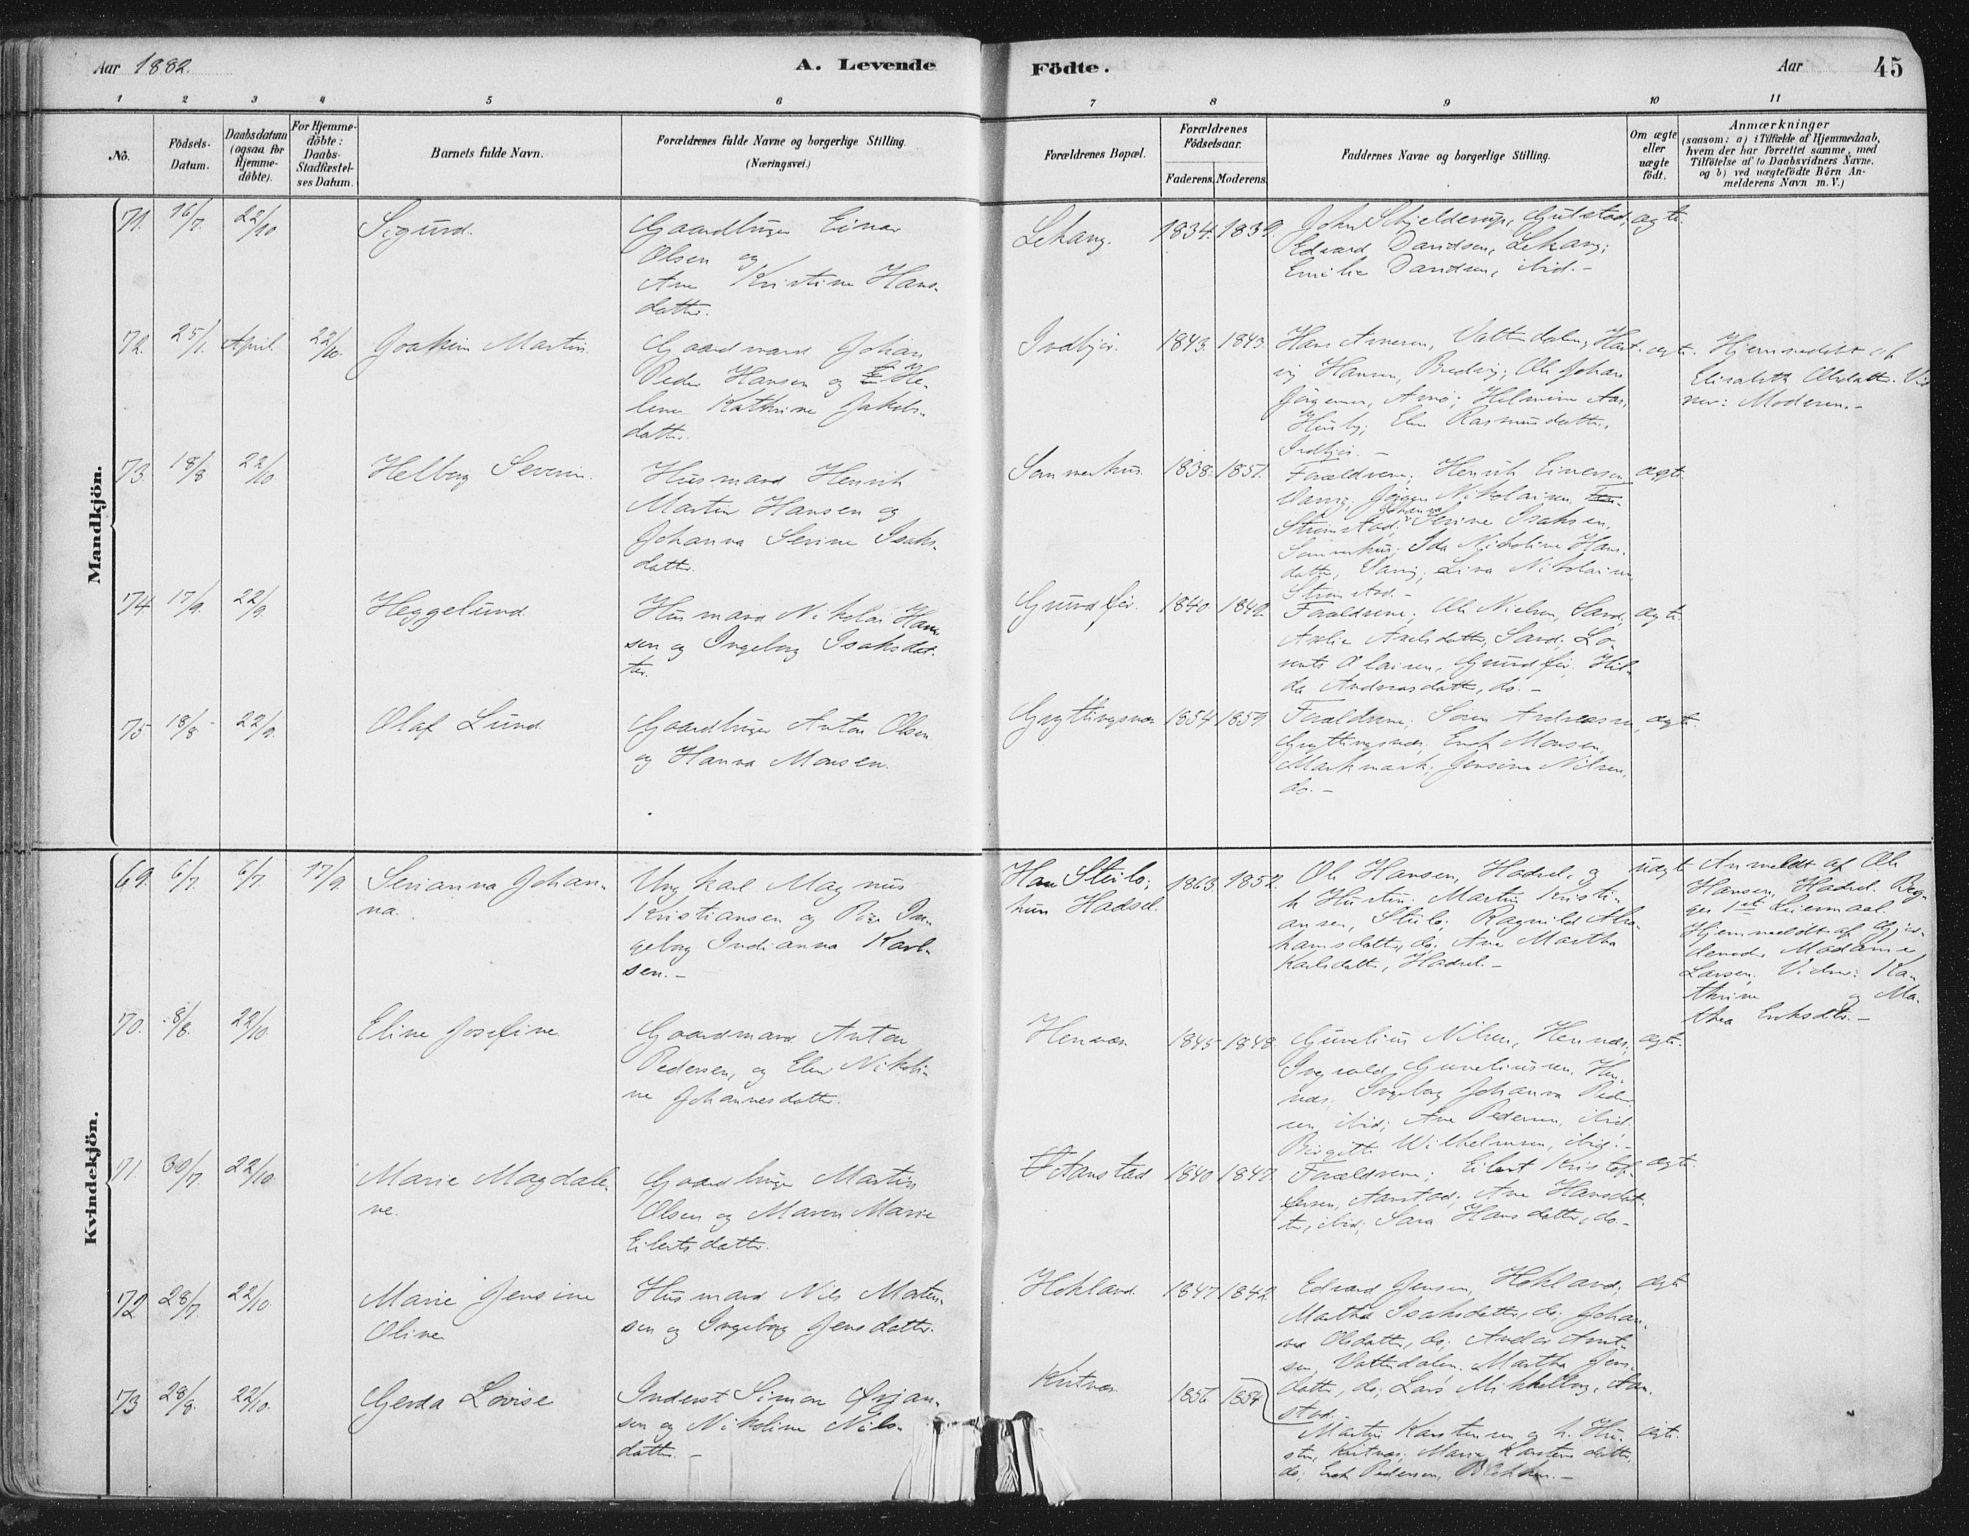 Aar 1882.
A. Levende Födte.
Aar
45
1 2 3 4 5 6 7 8 9 10 11
No.
Födsels-
Datum.
Daabsdatum
(ogsaa for
Hjemme-
döbte).
For Hjemme-
döbte:
Daabs-
Stadfæstel-
ses Datum.
Barnets fulde Navn.
Forældrenes fulde Navne og borgerlige Stilling.
(Næringsvei.)
Forældrenes Bopæl.
Forældrenes
Födselsaar.
Faderens. Moderens.
Faddernes Navne og borgerlige Stilling.
Om ægte
eller
uægte
födt.
Anmærkninger
(saasom: a) i Tilfælde af Hjemmedaab,
hvem der har forrettet samme, med
Tilföielse af to Daabsvidners Navne,
og b) ved uægtefödte Börn An-
melderens Navn m. V.)
Mandkjön.
71. 16/7. 22/10 Sigurd.
Gaardbruger Einar
Olsen og
Ane Kristine Hans-
datter.
Lekang. 1834. 1839.
John Schjelderup, Gulstad,
Edvard Davidsen, Lekang;
Emilie Davidsen, ibid.-
ægte.
72. 25/1. April. 22/10. Joakim Martin.
Gaardmand Johan
Peder Hansen og He-
lene Kathrine Jakobs-
datter.
Indbjör. 1843. 1843.
Hans Arnesen, Vatterdalen, Hart-
vig Hansen, Bredvig; Ole Johan
Jörgensen, Arnö; Helmine Aas,
Husby; Elen Rasmusdatter,
Indbjör.-
ægte.
Hjemmedöbt af
Elisabeth Olsdatter. Vid-
ner: Moderen.-
73. 18/8 22/10 Helberg Severin.
Husmand Henrik
Martin Hansen og
Johanna Serine Isaks-
datter.
Sommerhus. 1838. 1851.
Forældrene; Henrik Einersen,
Vavig; Jörgen Nikolaisen,
Strömstad; Johanna Serine Isaksen,
Sommerhus; Ida Nicoline Hans-
datter, Vavig; Lina Nikolaisen
Strömstad.-
ægte.
74. 17/9. 22/9. Heggelund.
Husmand Nikolai Han-
sen og Ingeborg Isaksdat-
ter.
Grundför. 1840. 1849.
Forældrene; Ole Nielsen, Sand;
Axelie Axelsdatter, Sand; Lo-
rents Olaisen, Grundför, Hil-
da Andreasdatter, do.-
ægte.
75. 18/8 22/9. Olaf Lund.
Gaardbruger Anton Olsen
og Hanna Monsen.
Grytingsnes 1854 1859
Forældrene; Sören Andreassen,
Grytingsnes, Erik Monsen,
Markmark; Jensine Nilsen,
do.-
ægte.
Kvindekjön.
69. 6/7. 6/7. 17/9. Serianna Johan-
na.
Ungkarl Magnus
Kristiansen og Pige In-
geborg Indianna Karl-
sen.-
Han Steilo;
hun Hadsel. 1863. 1852.
Ole Hansen, Hadsel, og
h. Hustru. Martin Kristi-
ansen, Steilo; Ragnild Abra-
hamsdatter, do. Ane Martha
Karlsdatter, Hadsel.-
uægt
Anmeldt af Ole
Hansen, Hadsel. Beg-
ges 1ste Leiermaal.
Hjemmedöbt af Gjor-
demoder Madame
Larsen. Vidner: Ka-
thrine og Ma-
thea Eriksdtr.-
70. 8/8. 22/10. Eline Josefine
Gaardmand Anton
Pedersen, og Elen Nikoli-
ne Johannesdatter.
Hennes 1845 1848.
Gunelius Nilsen, Hennes;
Ingvald Guneliussen, Hen-
nes; Ingeborg Johanna Peder-
sen, ibid; Ane Pedersen, ibid.
Birgitte Wilhelmsen, ibid.-
ægte.
71. 30/7. 22/10. Marie Magdale-
ne.
Gaardbruger Martin
Olsen og Maren Marie
Eilertsdatter.
Aanstad 1840 1847.
Forældrene; Eilert Kristof-
fersen, Aanstad; Ane Hansdat-
ter, ibid; Sara Hansdatter, do-
ægte.
72. 28/7. 22/10. Marie Jensine
Oline
Husmand Nils Morten-
sen og Ingeborg Jensdatter.
Hokland. 1847. 1842.
Edvard Jensen, Hokland;
Martha Isaksdatter, do; Johan-
na Olsdatter, do; Anders Arnt-
sen, Vatterdalen. Martha Jens-
datter, do; Lars Mikkelborg, Aan-
stad.
ægt
73 28/8. 22/10. Gerda Lovise
Inderst Simon Örjan-
sen og Nikoline Nils-
datter.-
Kvitnes 1856 1854
Martin Karstensen og h. Hu-
stru, Kvitnes; Marie Karstensdatter,
do; Erik Pedersen,
ægte.